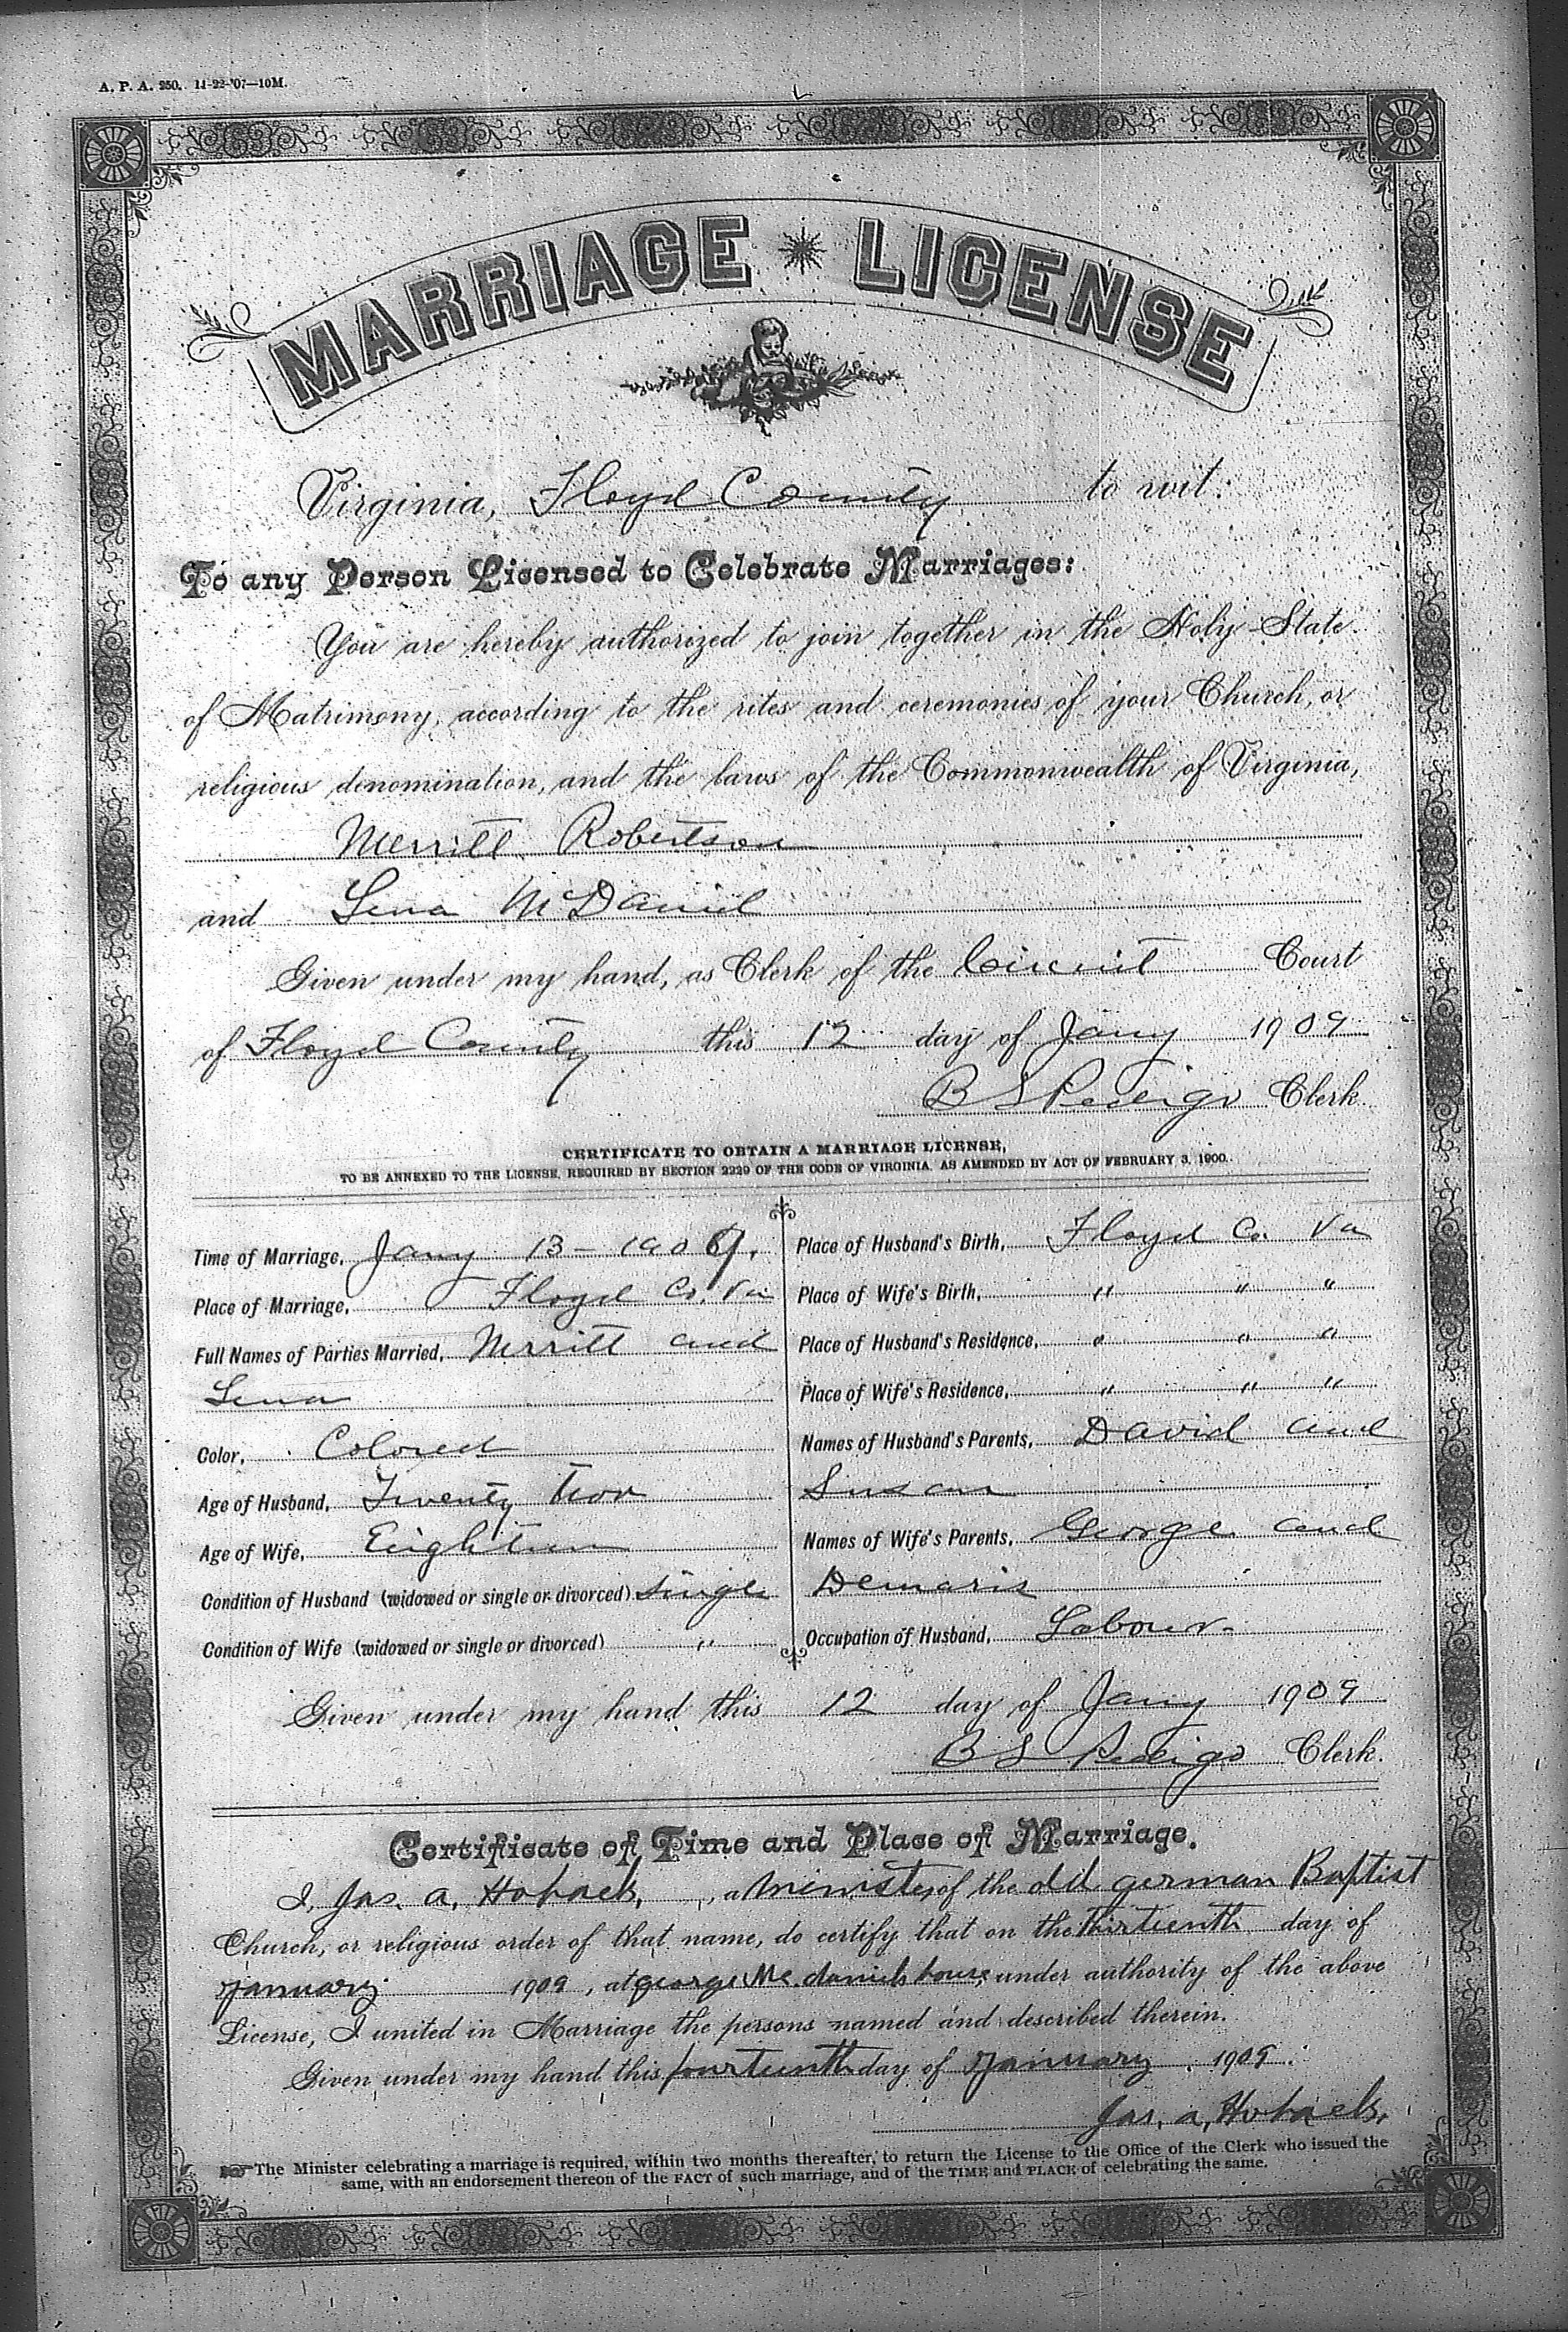 A. P. A. 250. 11-22-'07—10M.
MARRIAGE LICENSE
Virginia, Floyd County to wit:
To any Person Licensed to Celebrate Marriages:
You are hereby authorized to join together in the Holy State
of Matrimony, according to the rites and ceremonies of your Church, or
religious denomination, and the laws of the Commonwealth of Virginia,
Merritt Robertson
and Lena McDaniel
Given under my hand, as Clerk of the Circuit Court
of Floyd County this 12 day of Jany 1909
B S Pedigo Clerk.
CERTIFICATE TO OBTAIN A MARRIAGE LICENSE,
TO BE ANNEXED TO THE LICENSE, REQUIRED BY SECTION 2229 OF THE CODE OF VIRGINIA, AS AMENDED BY ACT OF FEBRUARY 3, 1900.
Time of Marriage, Jany 13 - 1909.
Place of Marriage, Floyd Co. Va
Full Names of Parties Married, Merritt and
Lena
Color, Colored
Age of Husband, Twenty two
Age of Wife, Eighteen
Condition of Husband (widowed or single or divorced) Single
Condition of Wife (widowed or single or divorced) "
Place of Husband's Birth, Floyd Co. Va
Place of Wife's Birth, " " "
Place of Husband's Residence, " " "
Place of Wife's Residence, " " "
Names of Husband's Parents, David and
Susan
Names of Wife's Parents, George and
Demaris
Occupation of Husband, Labour.
Given under my hand this 12 day of Jany 1909
B S Pedigo Clerk.
Certificate of Time and Place of Marriage.
I, Jas. A. Hoback, a minister of the old german Baptist
Church, or religious order of that name, do certify that on the thirteenth day of
January 1909, at george Mc daniels house under authority of the above
License, I united in Marriage the persons named and described therein.
Given under my hand this fourteenth day of January 1909.
Jas. A. Hoback.
The Minister celebrating a marriage is required, within two months thereafter, to return the License to the Office of the Clerk who issued the
same, with an endorsement thereon of the FACT of such marriage, and of the TIME and PLACE of celebrating the same.